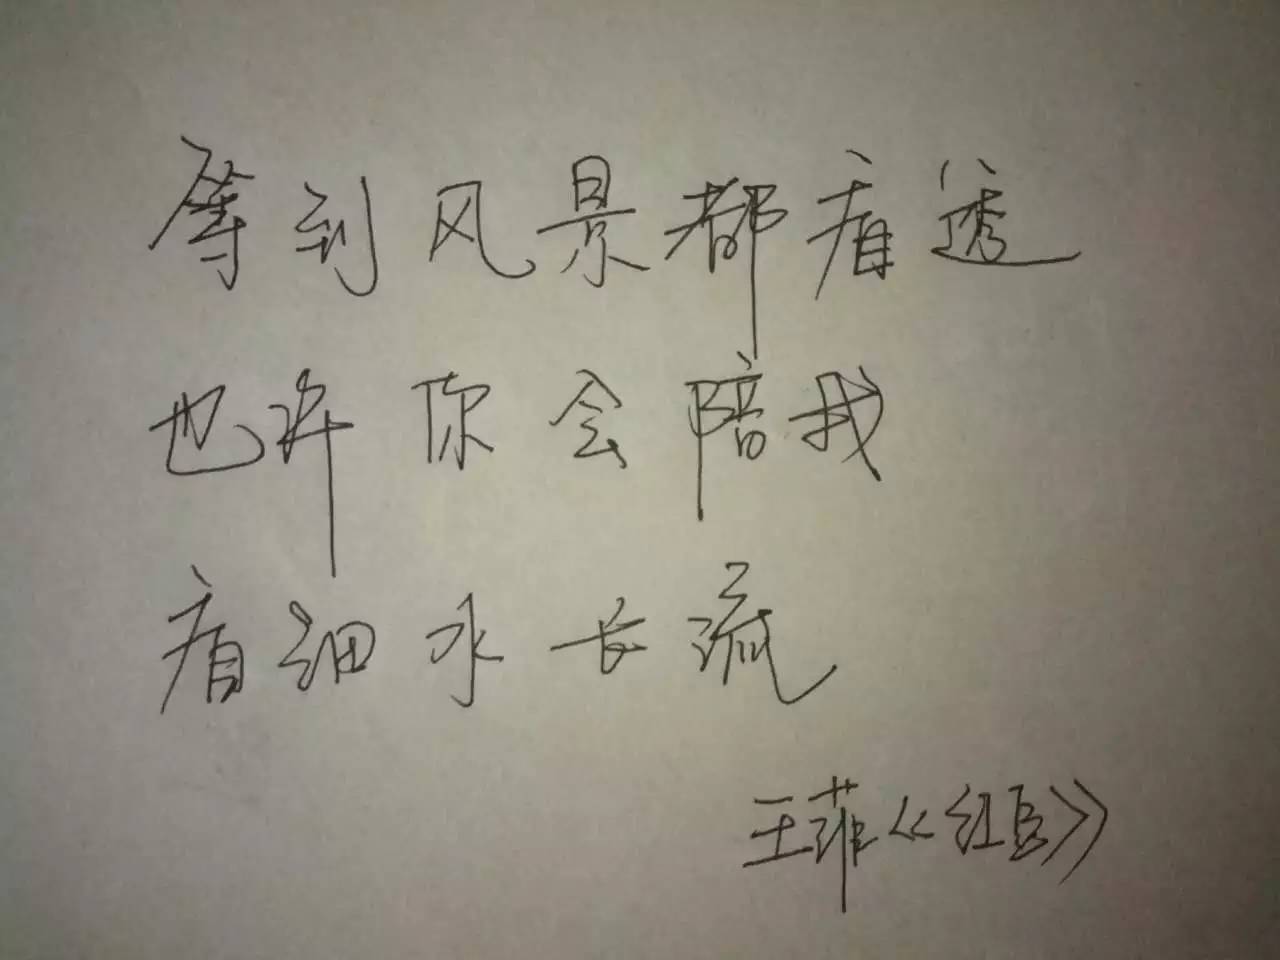 等到风景都看透
也许你会陪我
看细水长流
王菲《红豆》